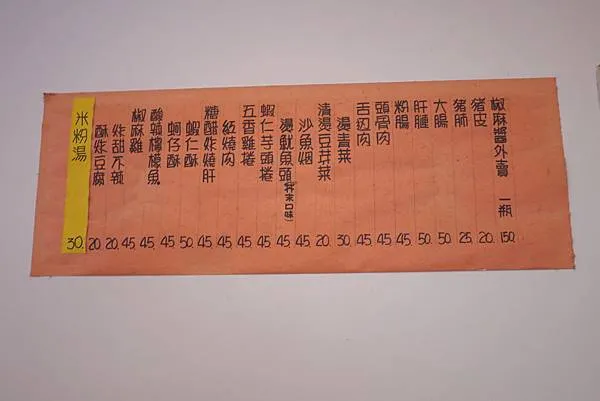 椒麻醬外賣 一瓶 150.
豬皮 20.
豬肺 25.
大腸 50.
肝腱 50.
粉腸 45.
頭骨肉 45.
舌切肉 45.
燙青菜 30.
清燙豆芽菜 20.
沙魚烟 45.
燙魷魚頭(芥末口味) 45.
蝦仁芋頭捲 45.
五香雞捲 45.
紅燒肉 45.
糖醋炸燒肝 45.
蝦仁酥 50.
蚵仔酥 45.
酸辣檸檬魚 45.
椒麻雞 45.
炸甜不辣 20.
酥炸豆腐 20.
米粉湯 30.